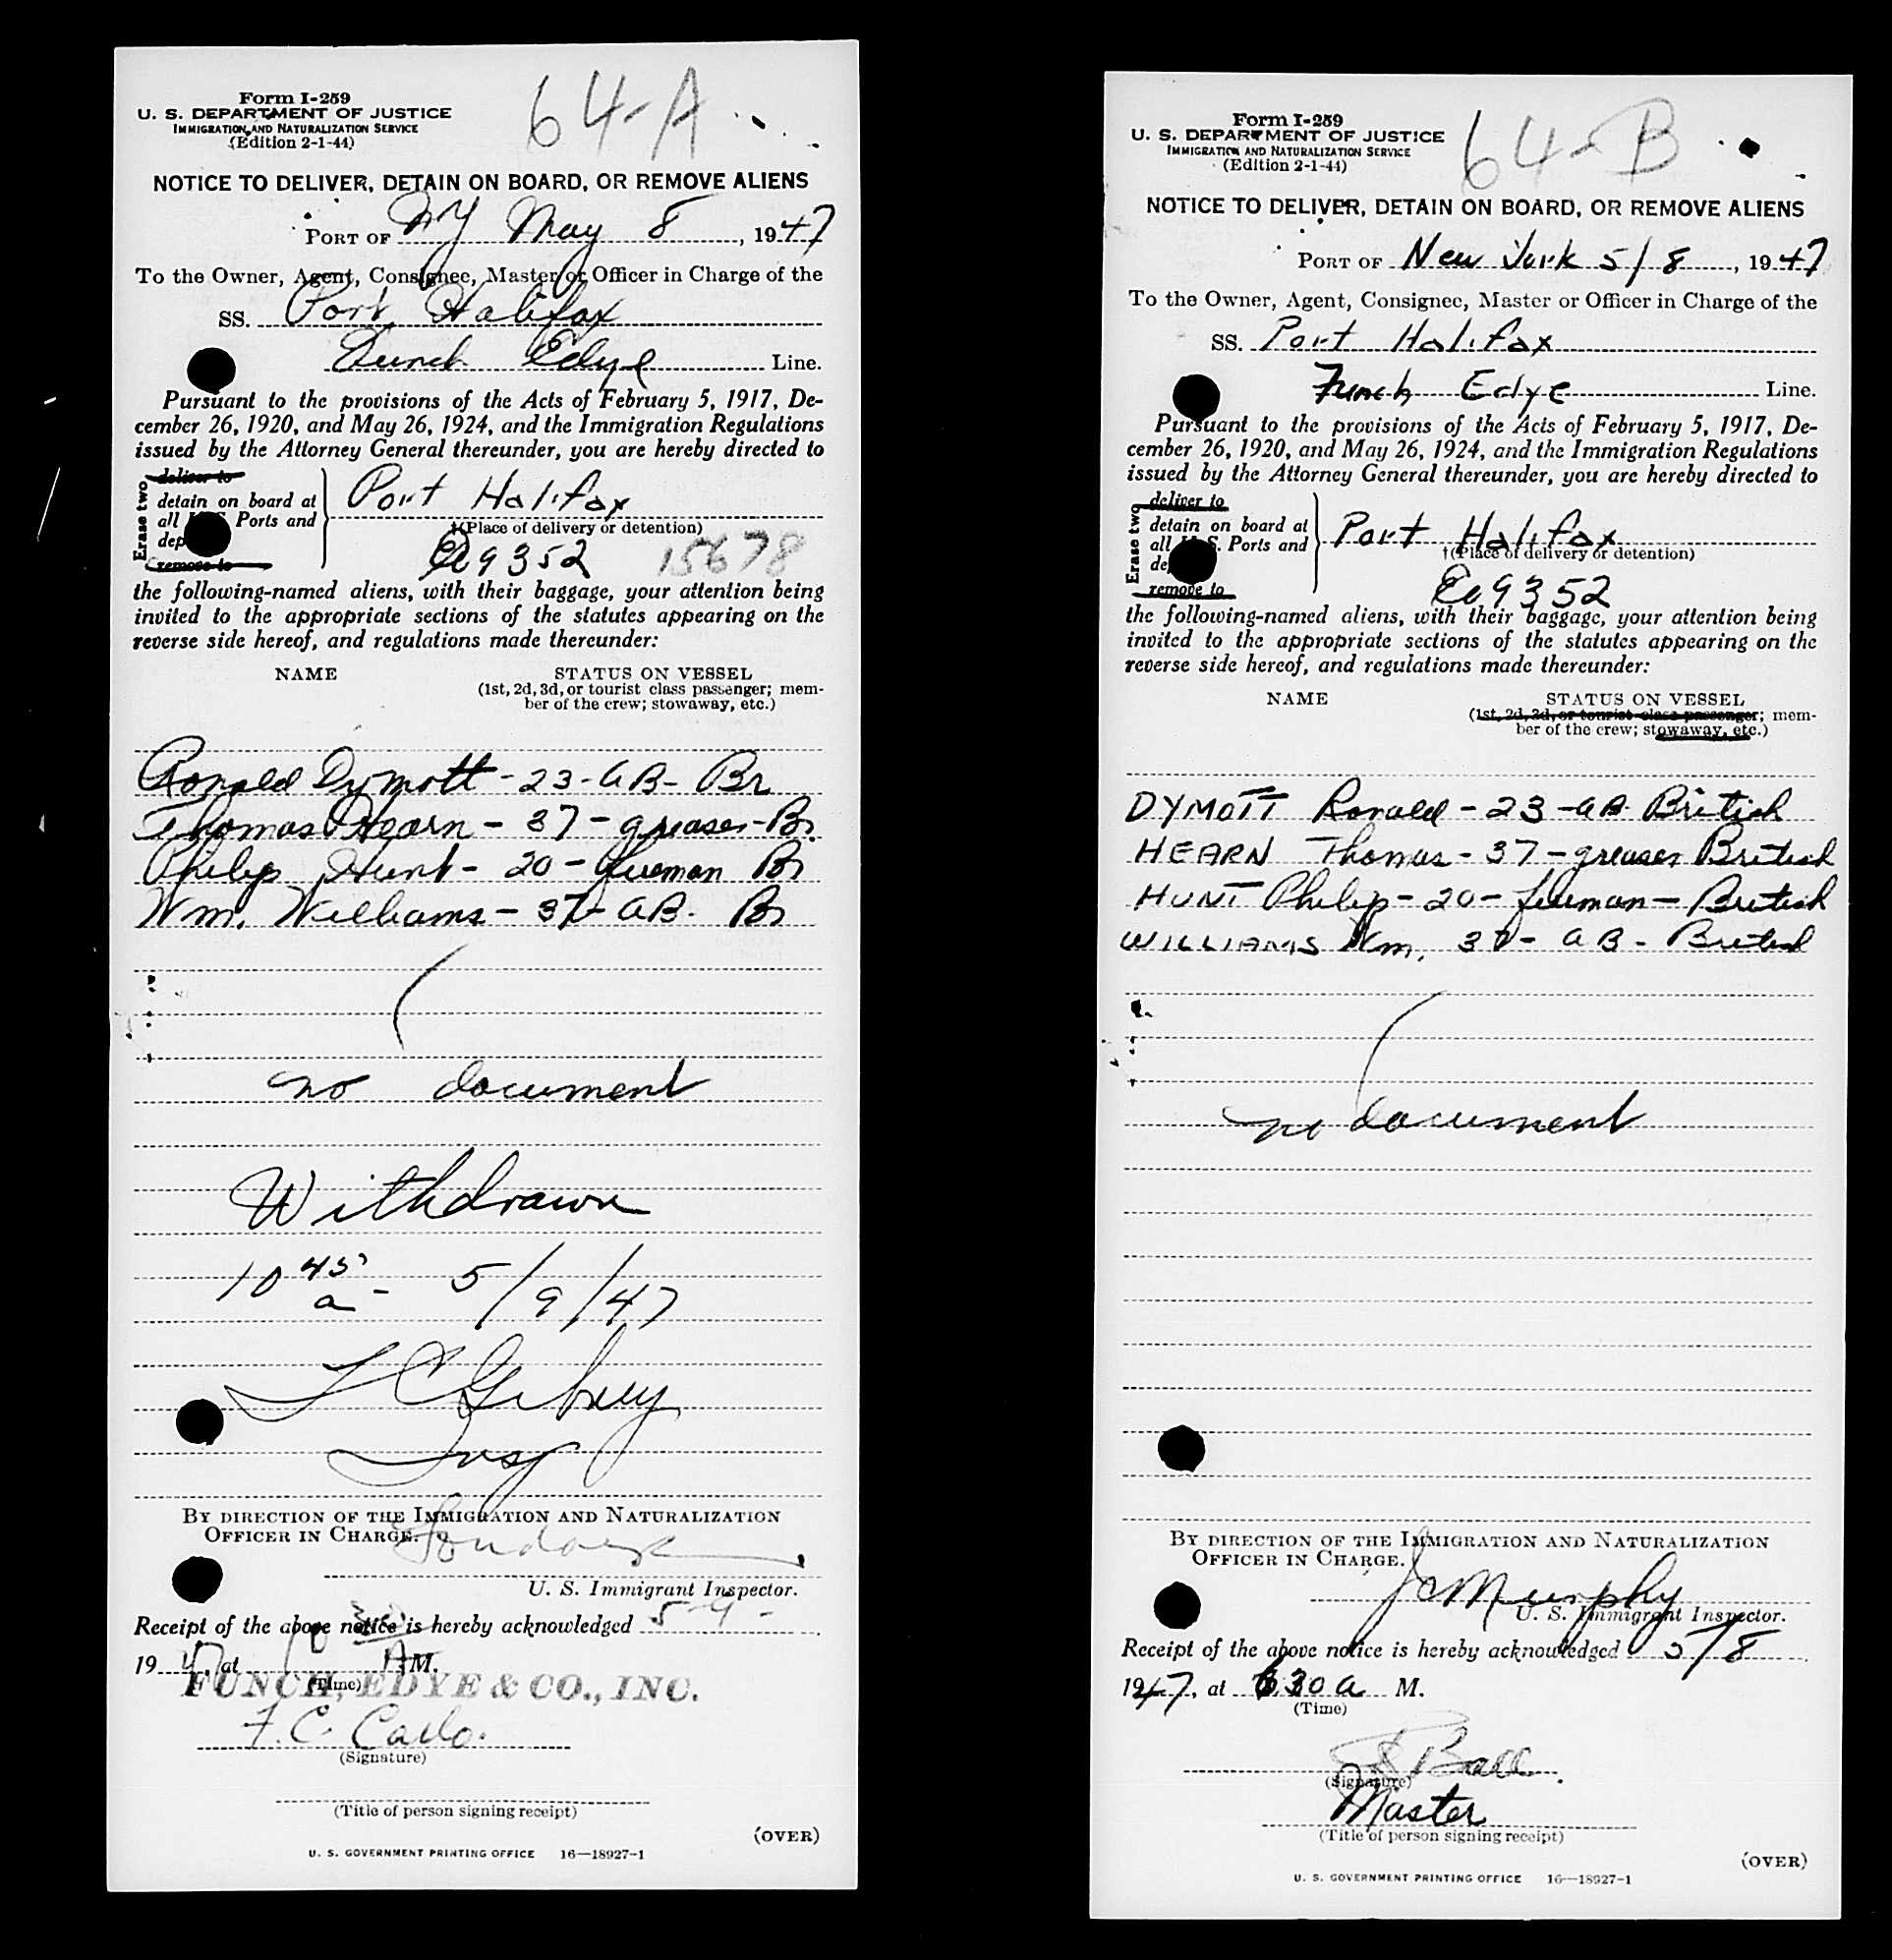 Form I-259
U. S. DEPARTMENT OF JUSTICE
IMMIGRATION AND NATURALIZATION SERVICE
(Edition 2-1-44)
64-A
NOTICE TO DELIVER, DETAIN ON BOARD, OR REMOVE ALIENS
PORT OF NY May 8, 1947
To the Owner, Agent, Consignee, Master or Officer in Charge of the
SS. Port Halifax
Funch Edye Line.
Pursuant to the provisions of the Acts of February 5, 1917, De-
cember 26, 1920, and May 26, 1924, and the Immigration Regulations
issued by the Attorney General thereunder, you are hereby directed to
Erase two
deliver to
detain on board at
all U.S. Ports and
dep
remove to
Port Halifax
†(Place of delivery or detention)
9352 15678
the following-named aliens, with their baggage, your attention being
invited to the appropriate sections of the statutes appearing on the
reverse side hereof, and regulations made thereunder:
NAME STATUS ON VESSEL
(1st, 2d, 3d, or tourist class passenger; mem-
ber of the crew; stowaway, etc.)
Ronald Dymott - 23 - AB - Br
Thomas Hearn - 37 - greaser - Br
Philip Hunt - 20 - fireman Br
Wm. Williams - 37 - AB - Br
no document
Withdrawn
10 45 a - 5/9/47
Insp
BY DIRECTION OF THE IMMIGRATION AND NATURALIZATION
OFFICER IN CHARGE.
U. S. Immigrant Inspector.
Receipt of the above notice is hereby acknowledged 5-9-
1947, at 10 30 A M.
(Time)
FUNCH, EDYE & CO., INC.
F. C. Carlo.
(Signature)
(Title of person signing receipt)
(OVER)
U. S. GOVERNMENT PRINTING OFFICE 16—18927-1
Form I-259
U. S. DEPARTMENT OF JUSTICE
IMMIGRATION AND NATURALIZATION SERVICE
(Edition 2-1-44)
64-B
NOTICE TO DELIVER, DETAIN ON BOARD, OR REMOVE ALIENS
PORT OF New York 5/8, 1947
To the Owner, Agent, Consignee, Master or Officer in Charge of the
SS. Port Halifax
Funch Edye Line.
Pursuant to the provisions of the Acts of February 5, 1917, De-
cember 26, 1920, and May 26, 1924, and the Immigration Regulations
issued by the Attorney General thereunder, you are hereby directed to
Erase two
deliver to
detain on board at
all U.S. Ports and
de
remove to
Port Halifax
†(Place of delivery or detention)
9352
the following-named aliens, with their baggage, your attention being
invited to the appropriate sections of the statutes appearing on the
reverse side hereof, and regulations made thereunder:
NAME STATUS ON VESSEL
(1st, 2d, 3d, or tourist class passenger; mem-
ber of the crew; stowaway, etc.)
DYMOTT Ronald - 23 - AB - British
HEARN Thomas - 37 - greaser British
HUNT Philip - 20 - fireman - British
WILLIAMS Wm. 37 - AB - British
no document
BY DIRECTION OF THE IMMIGRATION AND NATURALIZATION
OFFICER IN CHARGE.
JC Murphy
U. S. Immigrant Inspector.
Receipt of the above notice is hereby acknowledged 5/8
1947, at 30 a M.
(Time)
Ball.
(Signature)
Master
(Title of person signing receipt)
(OVER)
U. S. GOVERNMENT PRINTING OFFICE 16—18927-1